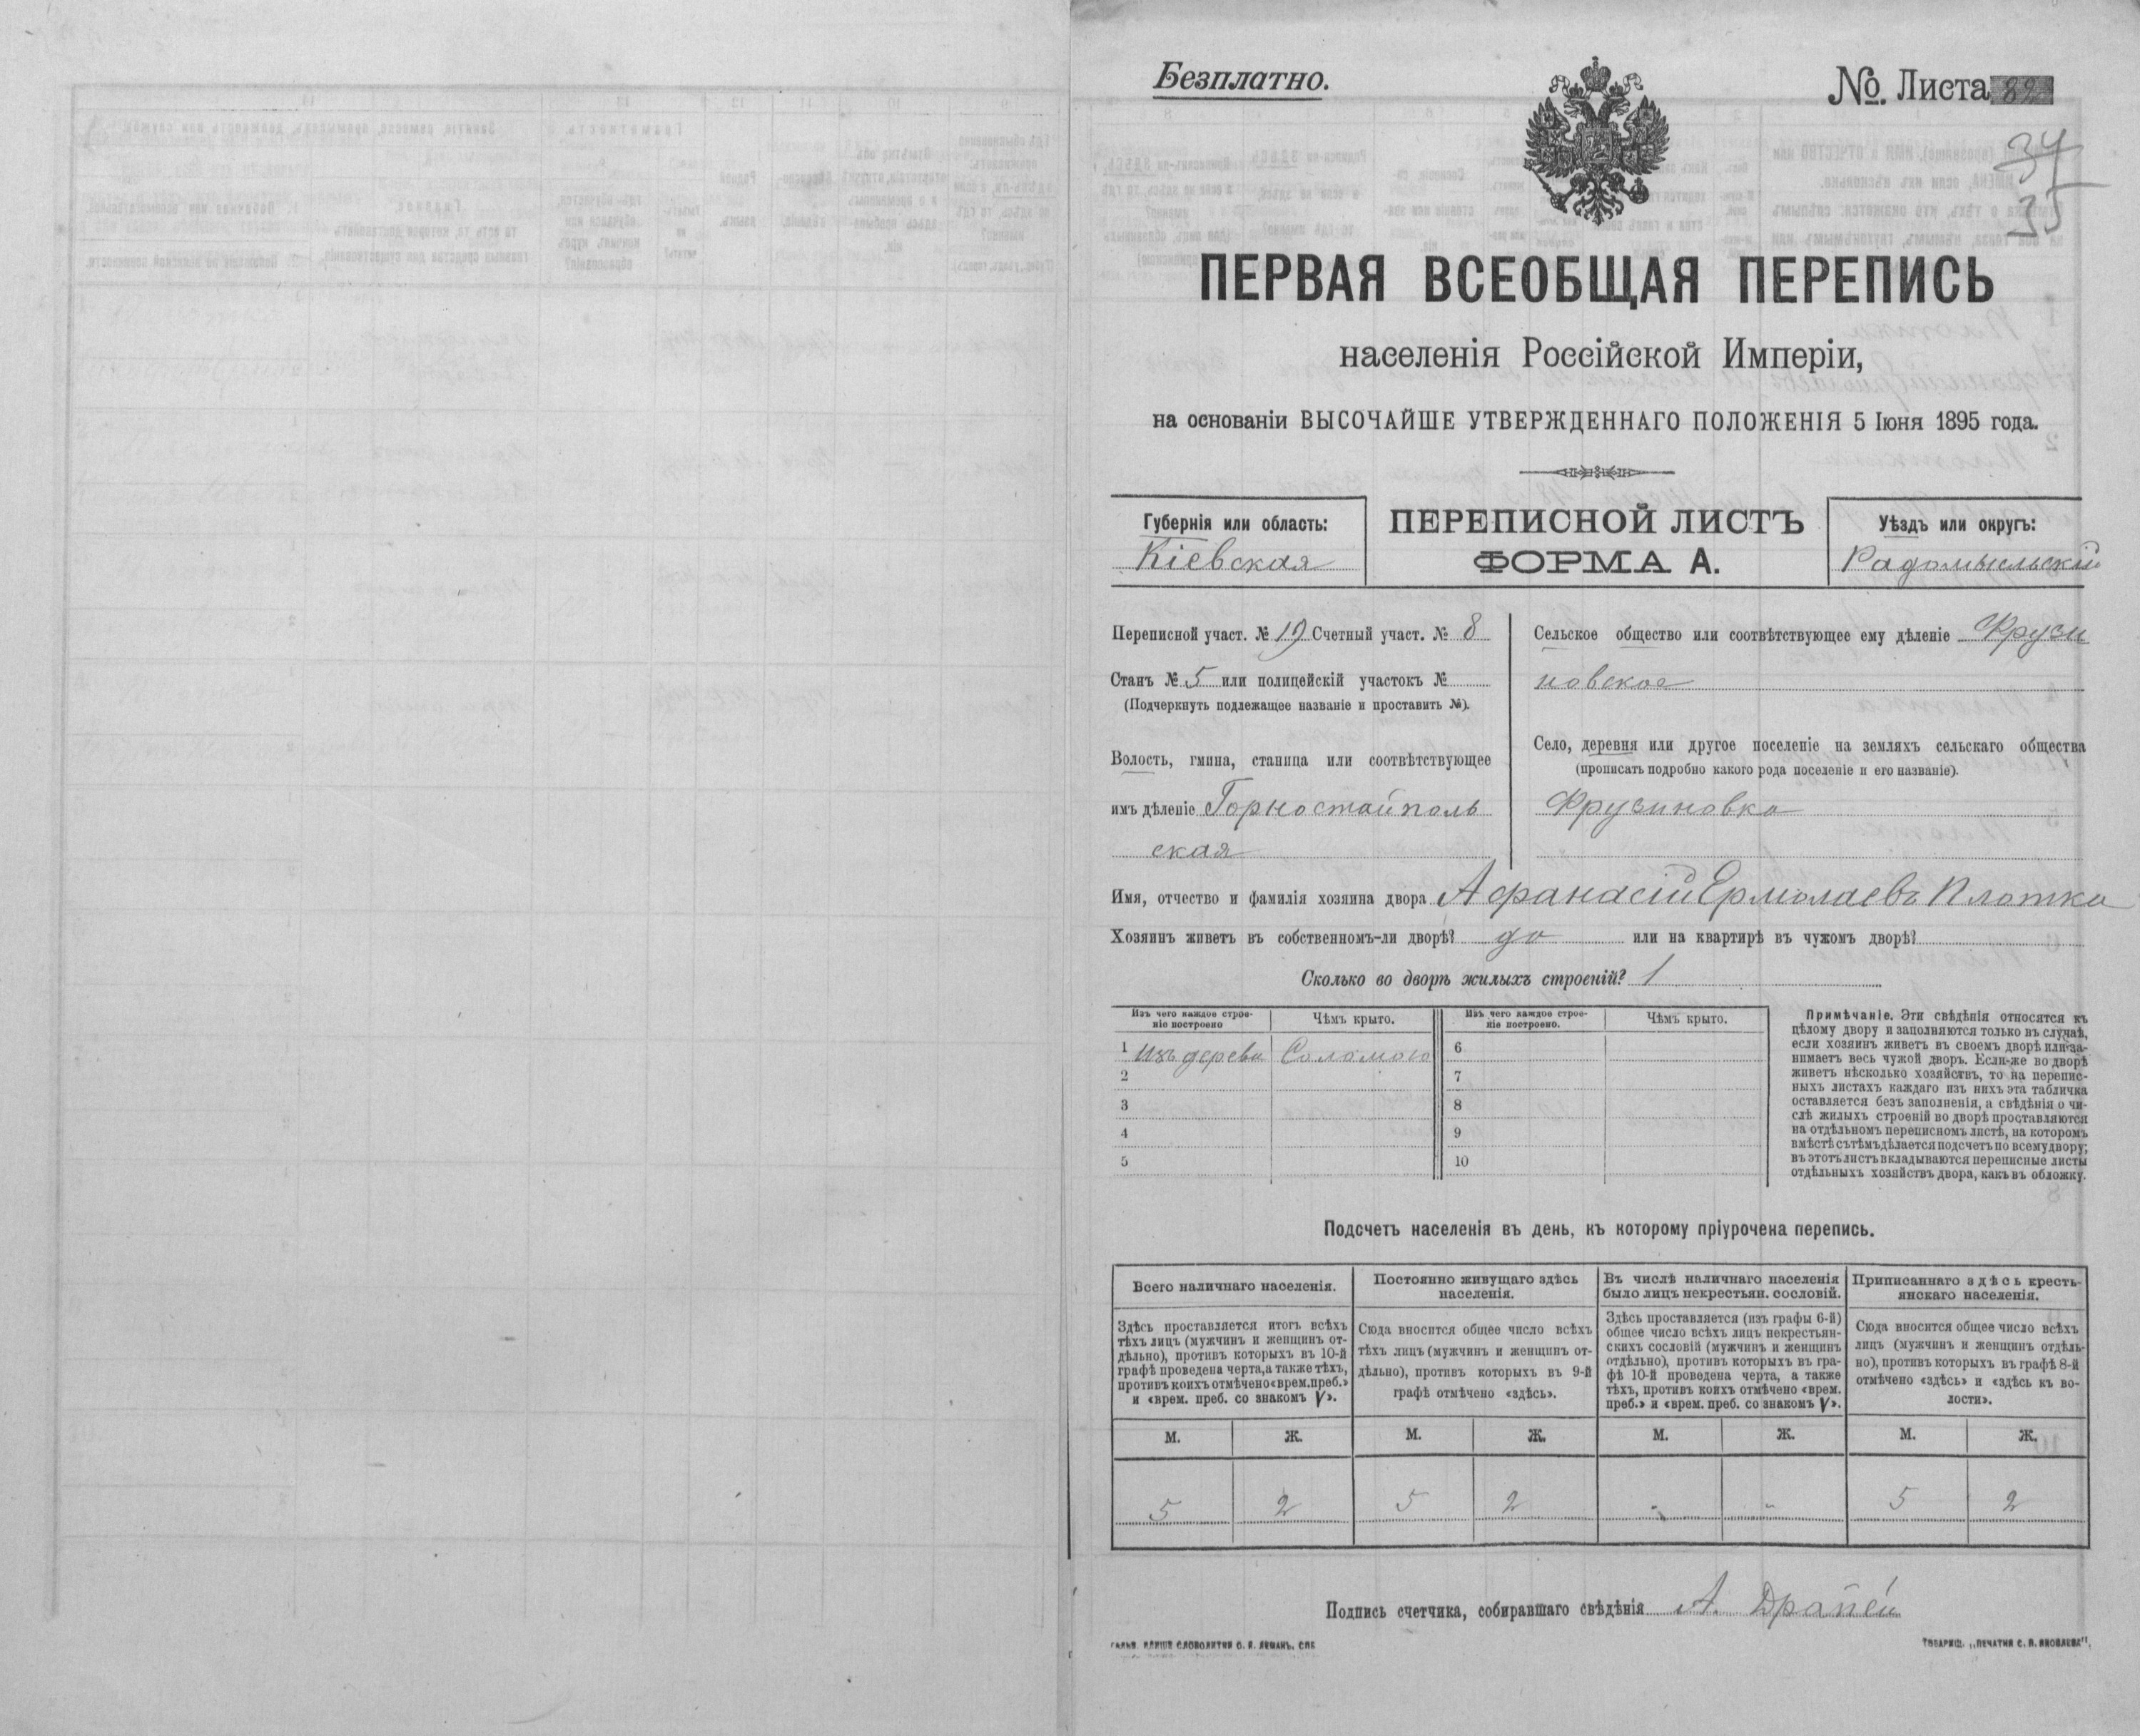 Безплатно.
№. Листа 82
34
35
ПЕРВАЯ ВСЕОБЩАЯ ПЕРЕПИСЬ
населенія Россійской Имперіи,
на основаніи ВЫСОЧАЙШЕ УТВЕРЖДЕННАГО ПОЛОЖЕНІЯ 5 Іюня 1895 года.
Губернія или область:
Кіевская
ПЕРЕПИСНОЙ ЛИСТЪ
ФОРМА А.
Уѣздъ или округъ:
Радомысльскій
Переписной участ. № 19 Счетный участ. № 8
Станъ № 5 или полицейскій участокъ №
(Подчеркнуть подлежащее названіе и проставить №).
Волость, гмина, станица или соотвѣтствующее
имъ дѣленіе Горностайполь
ская
Сельское общество или соотвѣтствующее ему дѣленіе Фрузи
новское
Село, деревня или другое поселеніе на земляхъ сельскаго общества
(прописать подробно какого рода поселеніе и его названіе).
Фрузиновка
Имя, отчество и фамилія хозяина двора Афанасій Ермолаевъ Плотка
Хозяинъ живетъ въ собственномъ-ли дворѣ? да или на квартирѣ въ чужомъ дворѣ?
Сколько во дворѣ жилыхъ строеній? 1
Изъ чего каждое строе-
ніе построено
Чѣмъ крыто.
Изъ чего каждое строе-
ніе построено.
Чѣмъ крыто.
1 Изъ дерева Соломою 6
2 7
3 8
4 9
5 10
Примѣчаніе. Эти свѣдѣнія относятся къ
цѣлому двору и заполняются только въ случаѣ,
если хозяинъ живетъ въ своемъ дворѣ или за-
нимаетъ весь чужой дворъ. Если-же во дворѣ
живетъ нѣсколько хозяйствъ, то на перепис-
ныхъ листахъ каждаго изъ нихъ эта табличка
оставляется безъ заполненія, а свѣдѣнія о чи-
слѣ жилыхъ строеній во дворѣ проставляются
на отдѣльномъ переписномъ листѣ, на которомъ
вмѣстѣ съ тѣмъ дѣлается подсчетъ по всему двору;
въ этотъ листъ вкладываются переписные листы
отдѣльныхъ хозяйствъ двора, какъ въ обложку.
Подсчетъ населенія въ день, къ которому пріурочена перепись.
Всего наличнаго населенія.
Здѣсь проставляется итогъ всѣхъ
тѣхъ лицъ (мужчинъ и женщинъ от-
дѣльно), противъ которыхъ въ 10-й
графѣ проведена черта, а также тѣхъ,
противъ коихъ отмѣчено «врем. преб.»
и «врем. преб. со знакомъ V».
Постоянно живущаго здѣсь
населенія.
Сюда вносится общее число всѣхъ
тѣхъ лицъ (мужчинъ и женщинъ от-
дѣльно), противъ которыхъ въ 9-й
графѣ отмѣчено «здѣсь».
Въ числѣ наличнаго населенія
было лицъ некрестьян. сословій.
Здѣсь проставляется (изъ графы 6-й)
общее число всѣхъ лицъ некрестьян-
скихъ сословій (мужчинъ и женщинъ
отдѣльно), противъ которыхъ въ гра-
фѣ 10-й проведена черта, а также
тѣхъ, противъ коихъ отмѣчено «врем.
преб.» и «врем. преб. со знакомъ V».
Приписаннаго здѣсь кресть-
янскаго населенія.
Сюда вносится общее число всѣхъ
лицъ (мужчинъ и женщинъ отдѣль-
но), противъ которыхъ въ графѣ 8-й
отмѣчено «здѣсь» и «здѣсь къ во-
лости».
М. Ж. М. Ж. М. Ж. М. Ж.
5 2 5 2 „ „ 5 2
Подпись счетчика, собиравшаго свѣдѣнія А. Драпей
ГАЛЬВ. КЛИШЕ СЛОВОЛИТНИ О. И. ЛЕМАНЪ, СПБ
ТОВАРИЩ. „ПЕЧАТНЯ С. П. ЯКОВЛЕВА".